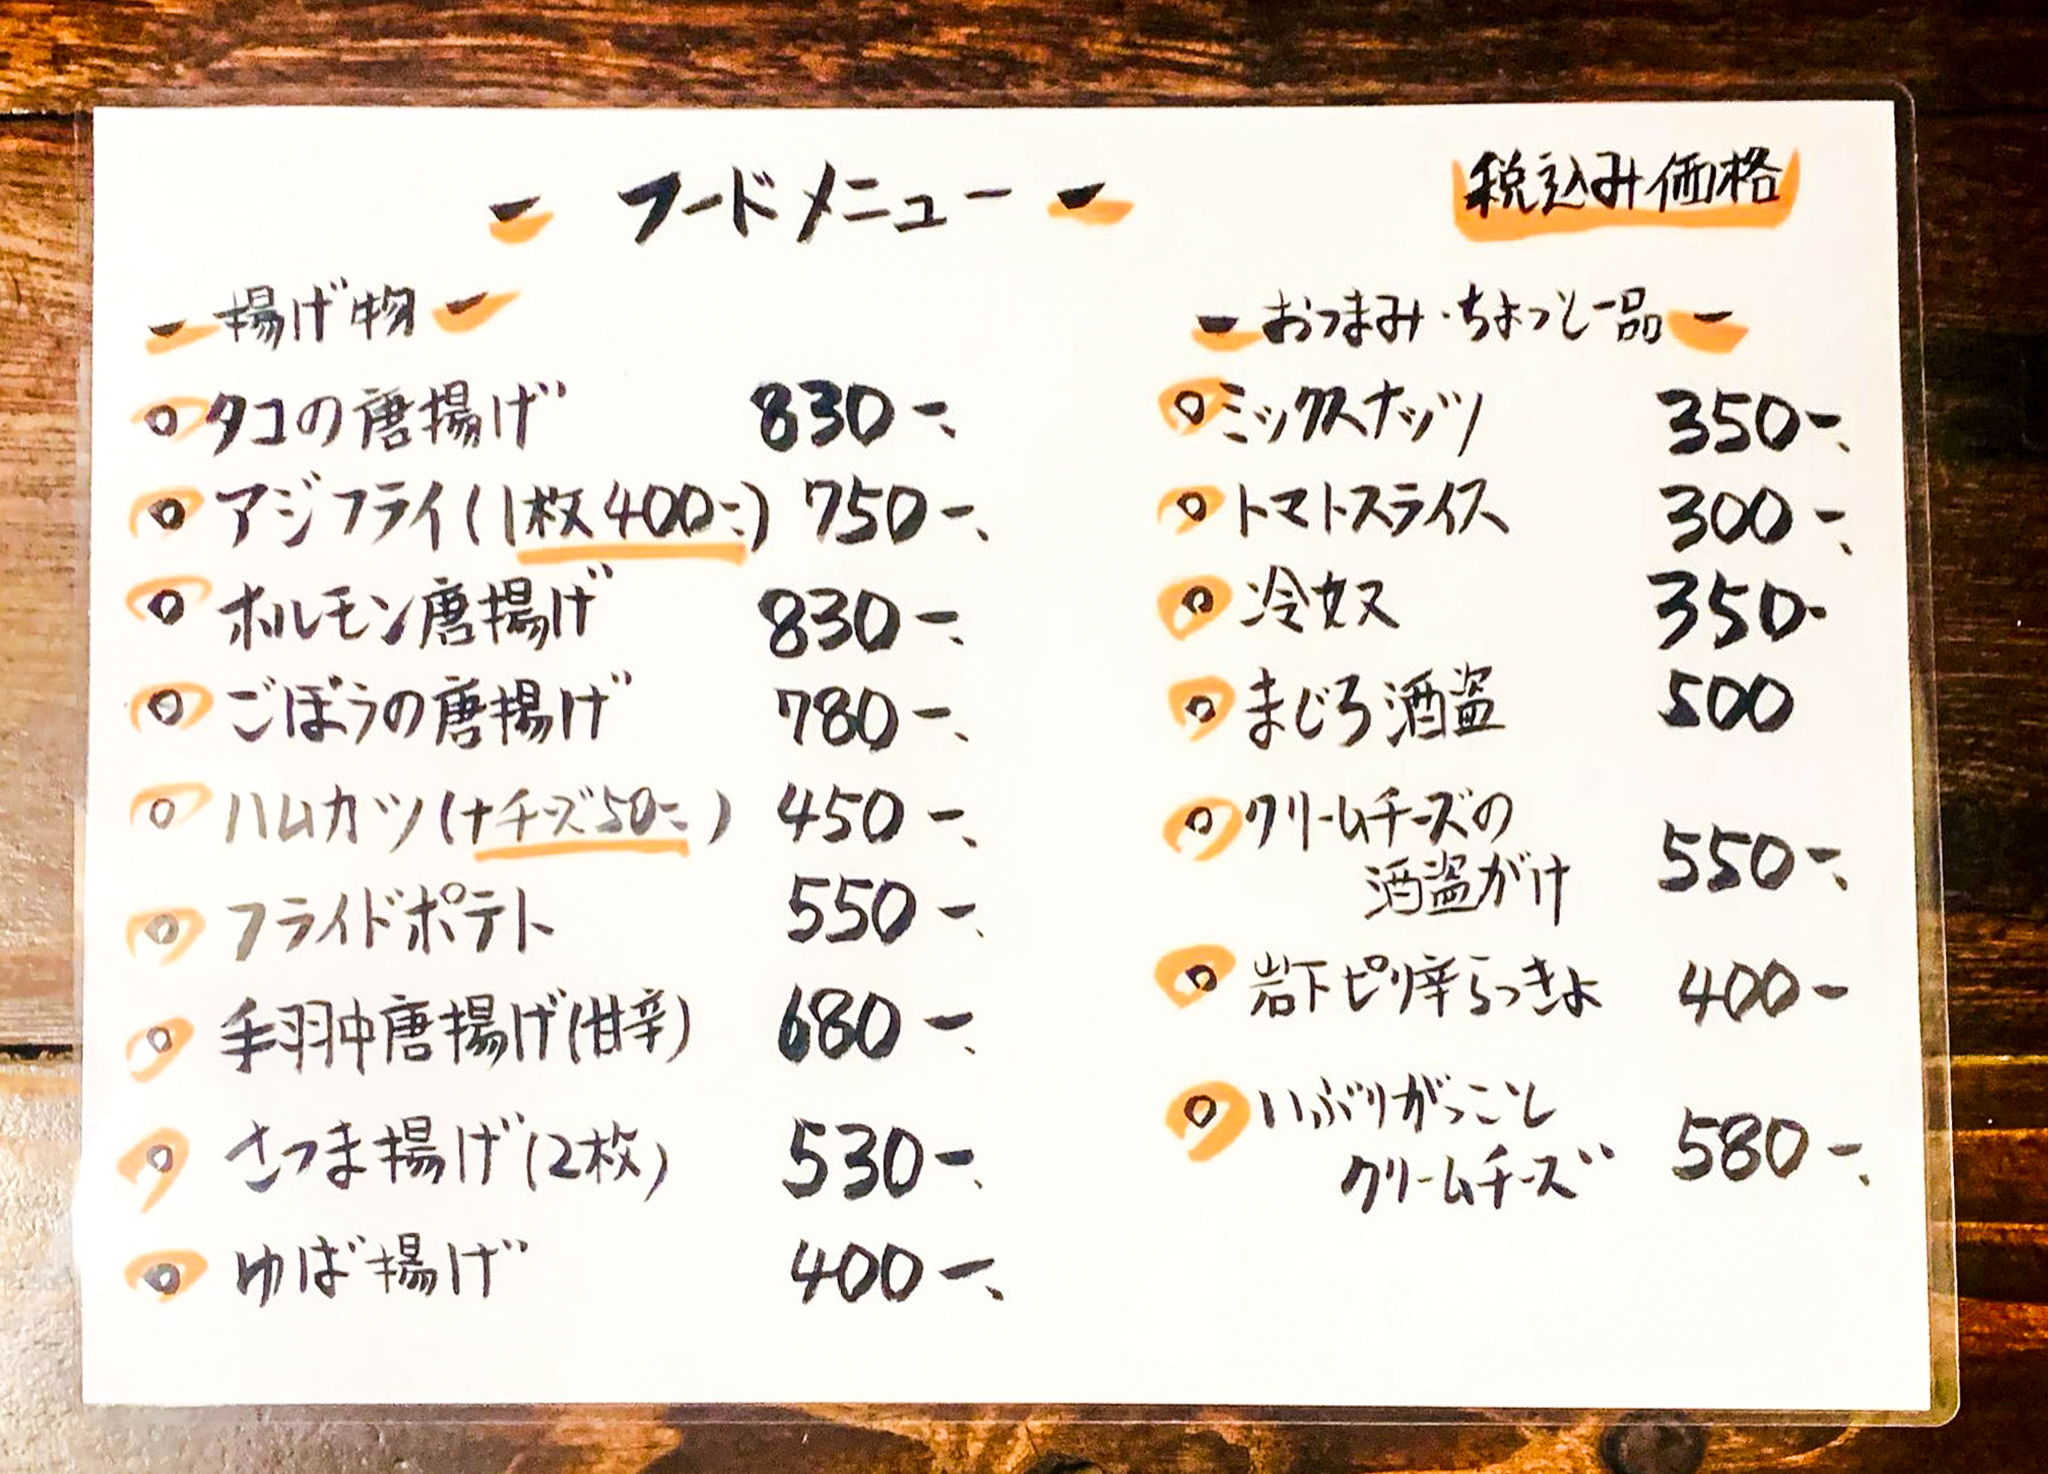 フードメニュー
税込み価格
揚げ物
タコの唐揚げ 830-
アジフライ(1枚400-) 750-
ホルモン唐揚げ 830-
ごぼうの唐揚げ 780-
ハムカツ(+チーズ50-) 450-
フライドポテト 550-
手羽中唐揚げ(甘辛) 680-
さつま揚げ(2枚) 530-
ゆば揚げ 400-
おつまみ・ちょっと一品
ミックスナッツ 350-
トマトスライス 300-
冷奴 350-
まぐろ酒盗 500
クリームチーズの
酒盗がけ 550-
岩下ピリ辛らっきょ 400-
いぶりがっこと
クリームチーズ 580-